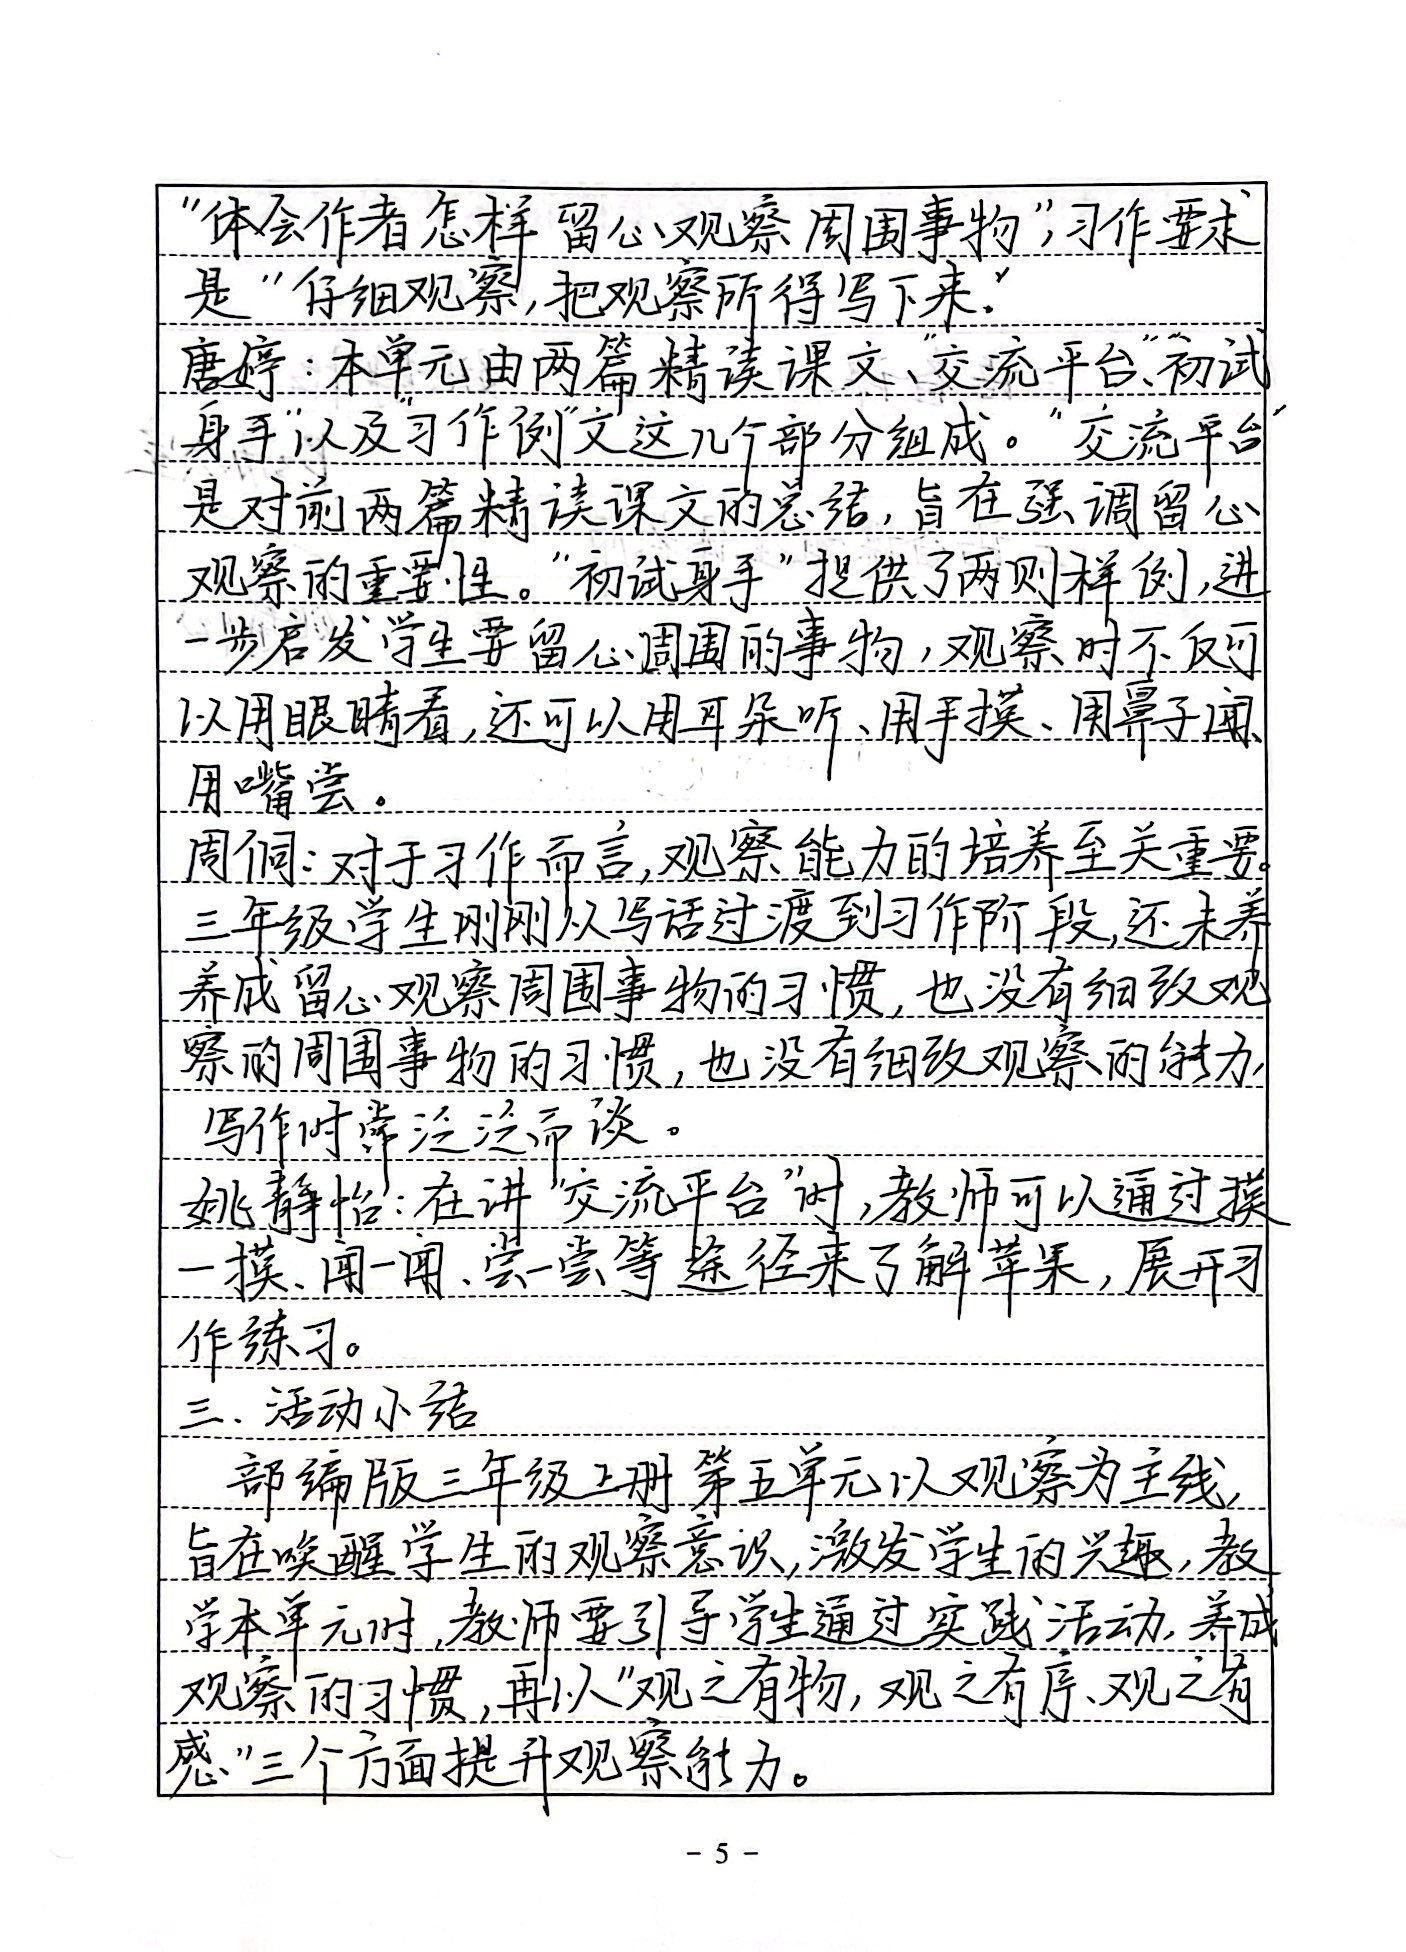 “体会作者怎样留心观察周围事物”，习作要求
是“仔细观察，把观察所得写下来。”
唐婷：本单元由两篇精读课文、“交流平台”、“初试
身手”以及“习作例”文这几个部分组成。“交流平台”
是对前两篇精读课文的总结，旨在强调留心
观察的重要性。“初试身手”提供了两则样例，进
一步启发学生要留心周围的事物，观察时不仅可
以用眼睛看，还可以用耳朵听、用手摸、用鼻子闻、
用嘴尝。
周侗：对于习作而言，观察能力的培养至关重要。
三年级学生刚刚从写话过渡到习作阶段，还未养
养成留心观察周围事物的习惯，也没有细致观
察的周围事物的习惯，也没有细致观察的能力，
写作时常泛泛而谈。
姚静怡：在讲“交流平台”时，教师可以通过摸
一摸、闻一闻、尝一尝等途径来了解苹果，展开习
作练习。
三．活动小结
部编版三年级上册第五单元以观察为主线，
旨在唤醒学生的观察意识，激发学生的兴趣，教
学本单元时，教师要引导学生通过实践活动，养成
观察的习惯，再以“观之有物，观之有序、观之有
感”三个方面提升观察能力。
- 5 -